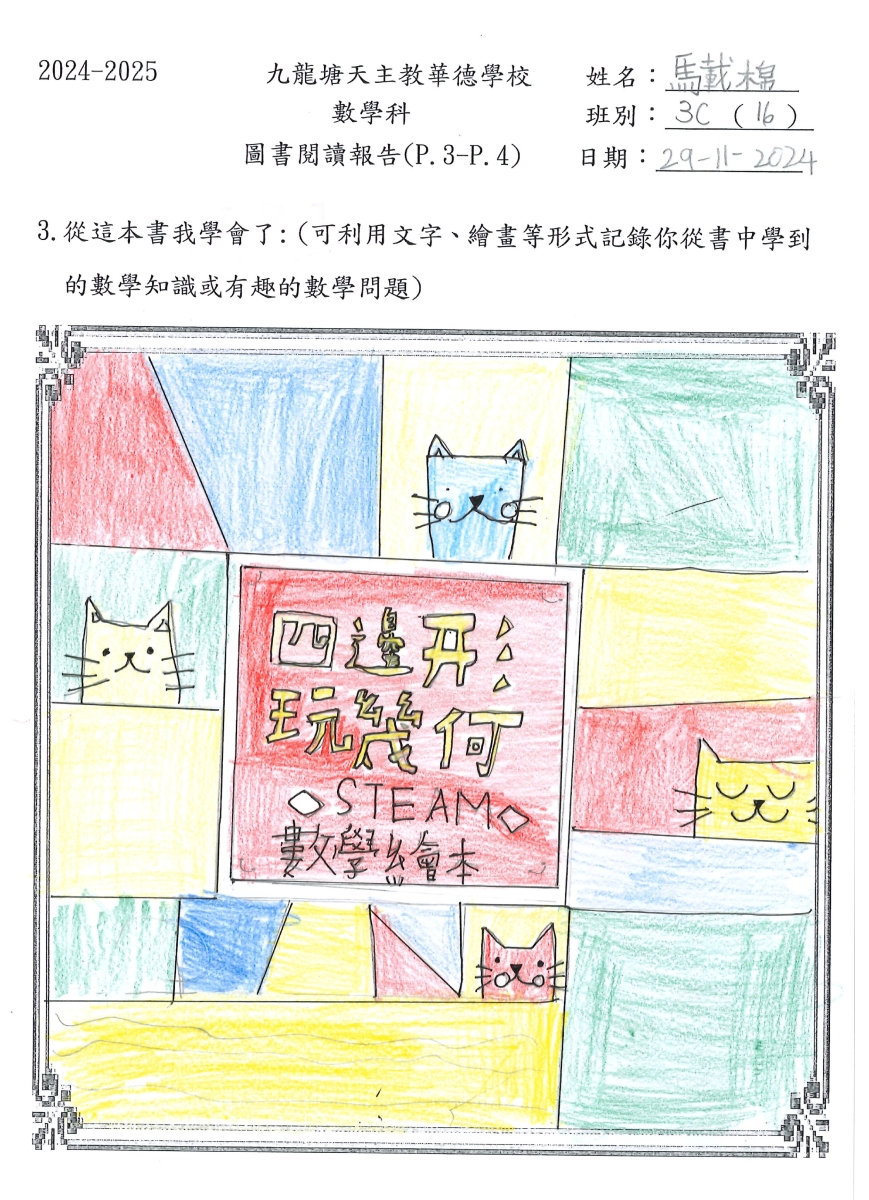 2024-2025
九龍塘天主教華德學校
姓名：馬載棉
數學科
班別：3C (16)
圖書閱讀報告(P.3-P.4)
日期：29-11-2024
3. 從這本書我學會了:(可利用文字、繪畫等形式記錄你從書中學到
的數學知識或有趣的數學問題)
四邊形
玩幾何
STEAM
數學繪本